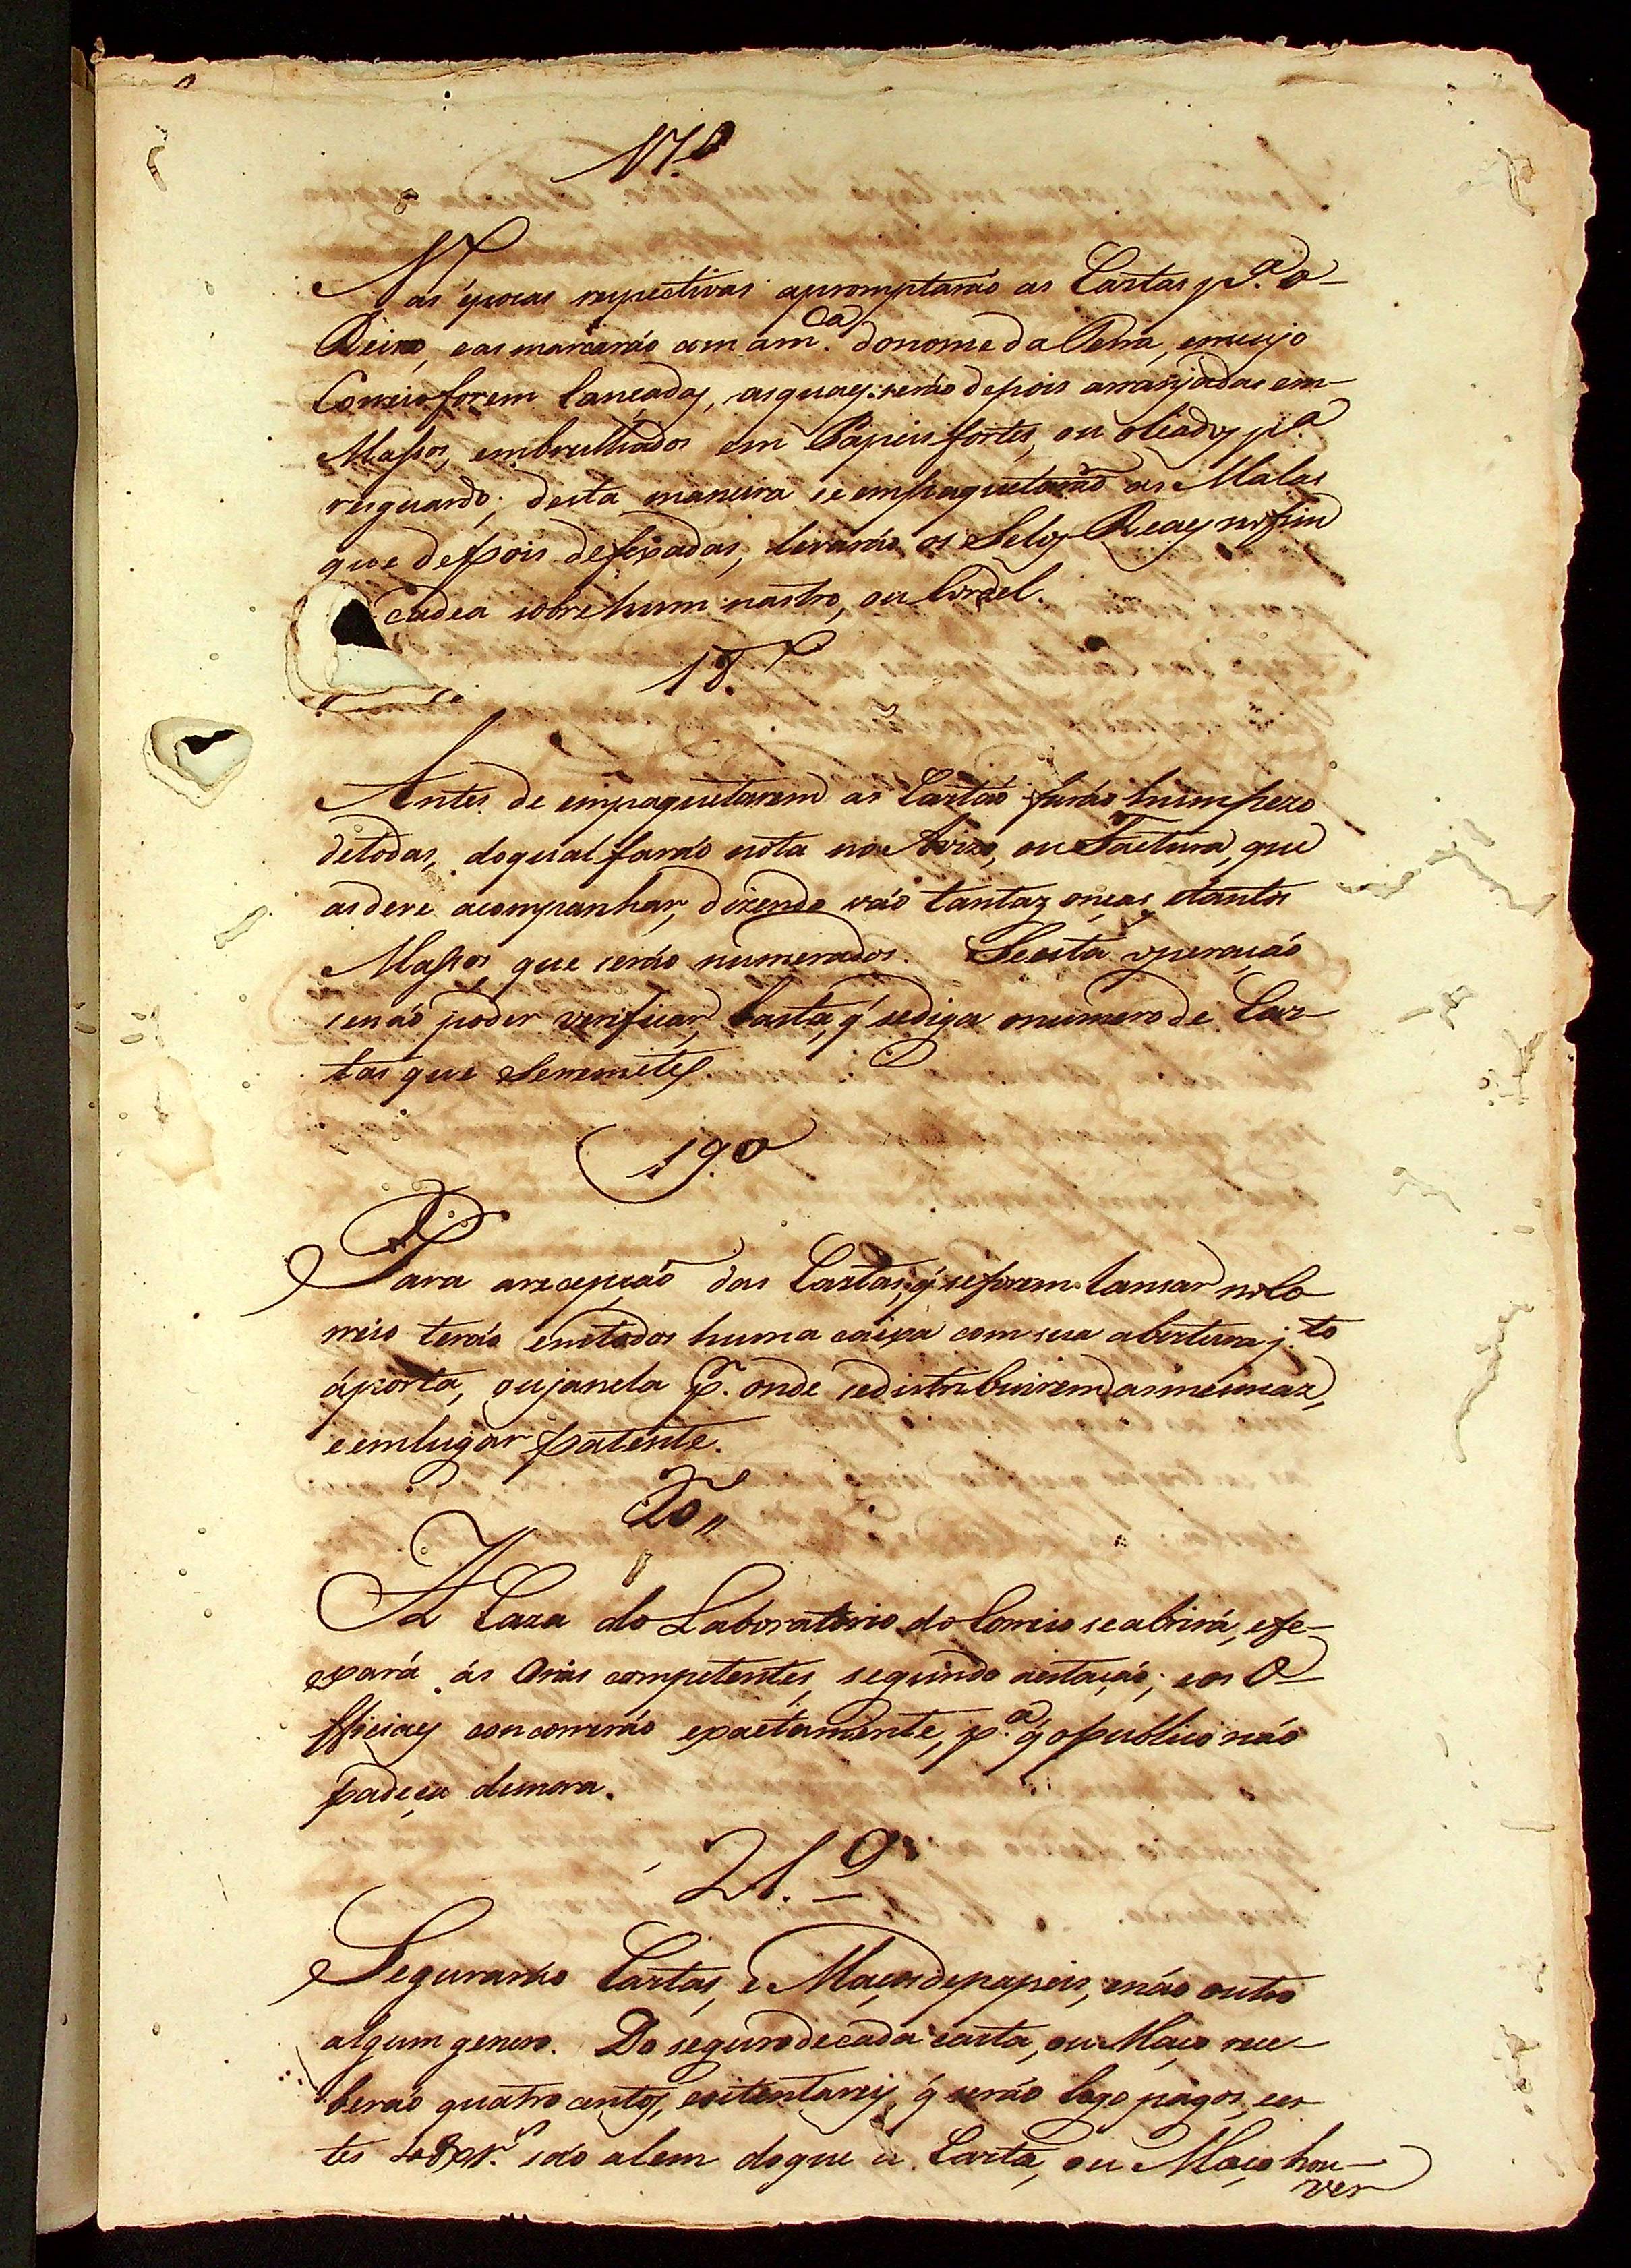 17.º
Nas épocas respectivas apromptarão as Cartas p.ª o
Reino, eas marcarão com am.ª donome da Terra, emcujo
Correio forem lançadas, asquaes serão depois arranjadas em
Massos, embrulhados em Papeis fortes, ou oliados p.ª
resguardo; desta maneira se empaquetarão as Malas
que depois defexadas, levarão os Selos Reaes nofim
cadea sobre hum nastro, ou Cordel.
18.º
Antes de empaquetarem as Cartas farão humpezo
detodas, doqual farão nota no Avizo, ou Factura, que
asdeve acompanhar, dizendo vão tantaz onças, etantos
Massos, que serão numerados. Seesta operação
senão poder verificar, basta, q' sediga onumero de Car-
tas que Seremete.
19.º
Para arecepção das Cartas, q' seforem lansar noCo
rreio terão emtodos huma caixa com sua abertura j.to
áporta, oujanela p.r onde sedistribuirem asmesmaz,
eemlugar patente.
20,,
A Caza do Laboratorio do Correio seabrirá, efe-
xará ás Oras competentes, segundo aestação; eos O-
fficiaes concorrerão exactamente, p.ª q' opublico não
padeça demora.
21.º
Segurarão Cartas, e Maços depapeis, enão outro
algum genero. Do segurodecada carta, ou Maço rece-
berão quatro centos, eoitentareis, q' serão logo pagos, ees
tes 480r.s são alem doque a Carta, ou Maço hou-
ver